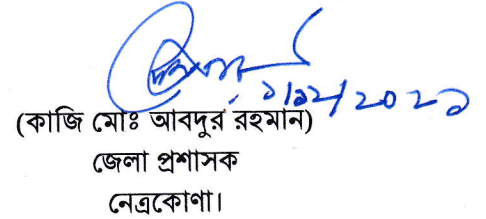 ১/১২/২০২১
(কাজি মোঃ আবদুর রহমান)
জেলা প্রশাসক
নেত্রকোণা।